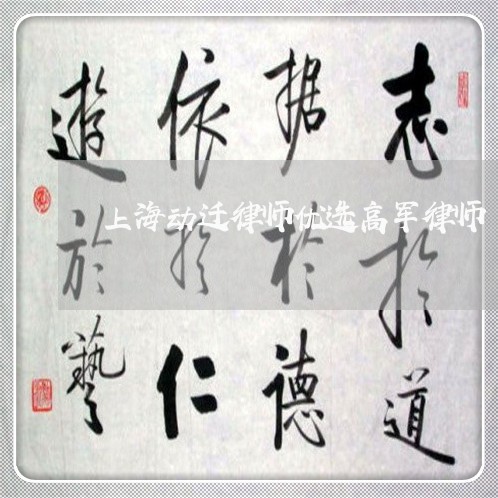 志扵道
据扵德
依扵仁
遊於藝
上海动迁律师优选高军律师